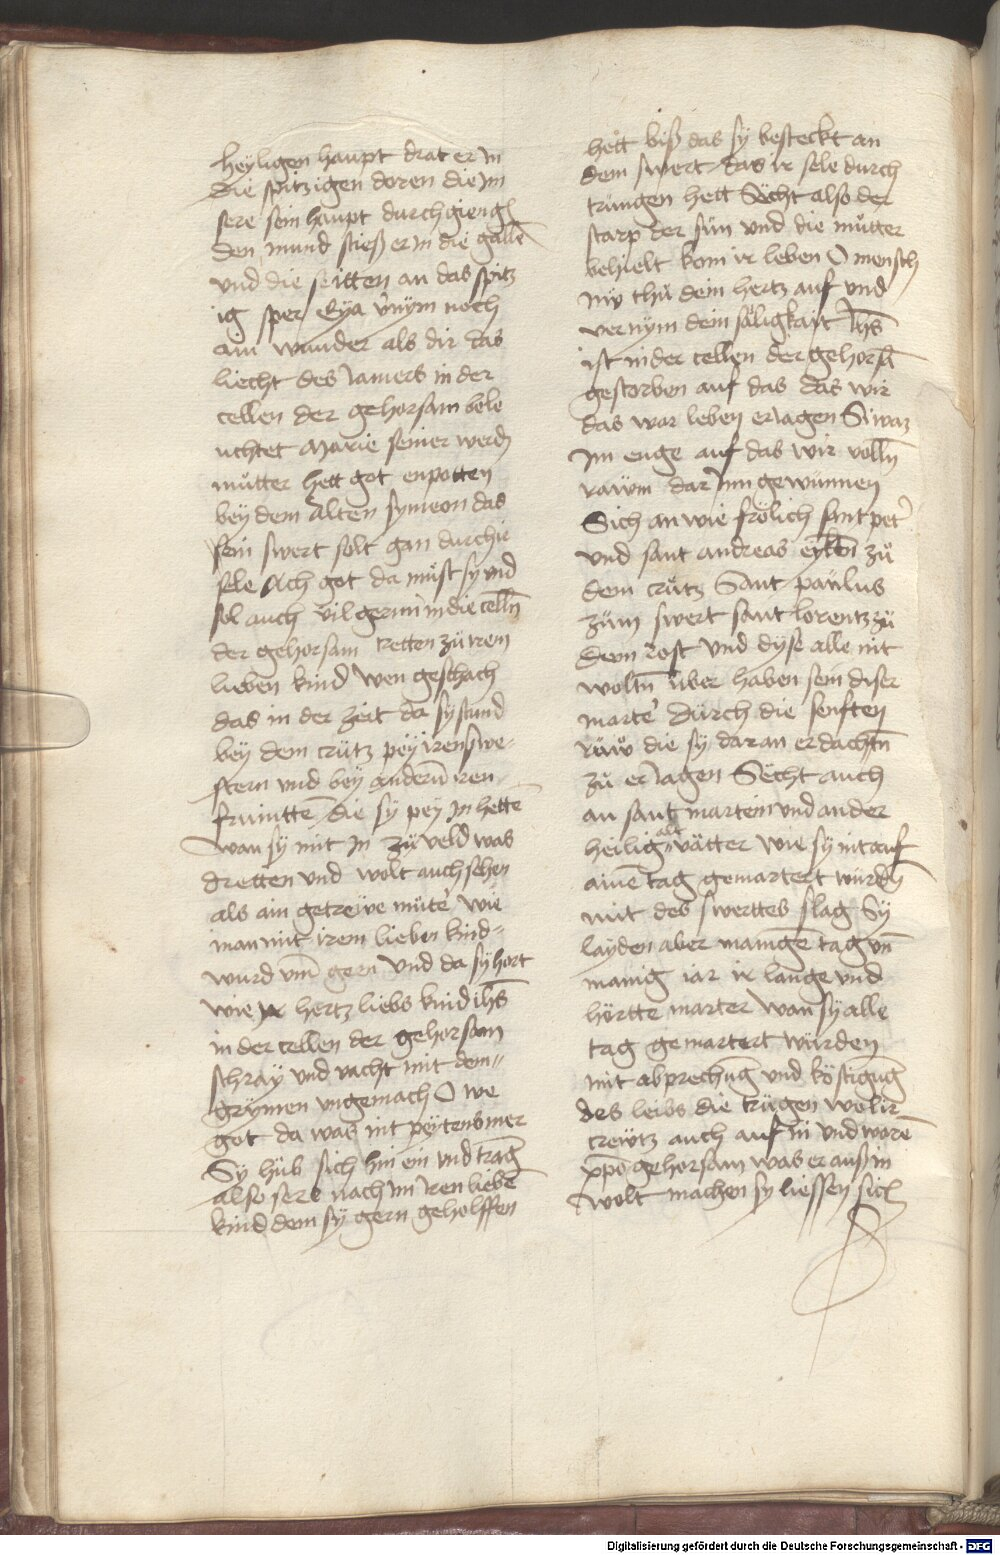 heyligen haupt drat er in
die spitzigen doren die im
sere sein haupt durch giengen
den mund stieß er in die gallē
und die seitten an das spitz
ig sper Eya v̓nÿm noch
ain wunder als dir das
liecht des iamers in der
cellen der gehorsam bele
uchtet Marie seiner werdn̄
muͦtter hett got enpotten
beÿ dem alten symeon das
sein swert solt gan durch ir
sele Ach got da muͦst sy und
sol auch vil gern in die cellñ
der gehorsam tretten zuͦ irem
lieben kind wen geschach
das in der zeit da sy stund
bey dem crütz peÿ iren swe-
stern und bey anderū iren
frūntten̄ die sy pey in hettē
wan sy mit in zü veld was
dretten und wolt auch sehen
als ain getreẅe muͦt̓ wie
man mit irem lieben kind-
wurd um̄ gen Und da sy hort
wie ir hertz liebs kind ih̄s
in der cellen der gehorsam
schraÿ und vacht mit dem-
grÿmen ungemach O we
got da was nit peÿtens mer
Sy huͦb sich hin ein und tranḡ
also sere nach im iren liebē
kind dem sÿ gern geholffen
hett biß das sÿ besteckt an
dem swert das ir sele durch
trungen hett Secht also der
starp der sün und die muͦtter
behielt kom ir leben O mensch
nu thuͦ dein hertz auf und
vernÿm dein säligkait Ih̄s
ist in der cellen der gehorsā
gestorben auf das das wir
das war leben eriagen Si waz
im enge auf das wir vollñ
raẅm dar inn gewunnen
Sich an wie frölich sant pet̓
und sant andreas eÿltñ zuͦ
dem crüͦtz Sant paülus
züm swert sant lorentz zü
dem rost Und dÿse alle nit
woltñ über haben sein diser
mart̓ Durch die senften
ruͦw die sy daran erdachtñ
zuͦ eriagen Secht auch
an sant martein und ander
heilig alt vätter wie sy nit auf
ainē tag gemartert wurdñ
mit des swerttes slag Sy
layden aber manigē tag un̄
manig iar ir lange und
hörtte marter Wan sy alle
tag gemartert wurden
mit abprechung und köstigung
des leibs die trügen wol ir
creẅtz auch auf in und warē
xp̄o gehorsam was er auß in
wolt machen sy liessen sich
Digitalisierung gefördert durch die Deutsche Forschungsgemeinschaft - DFG